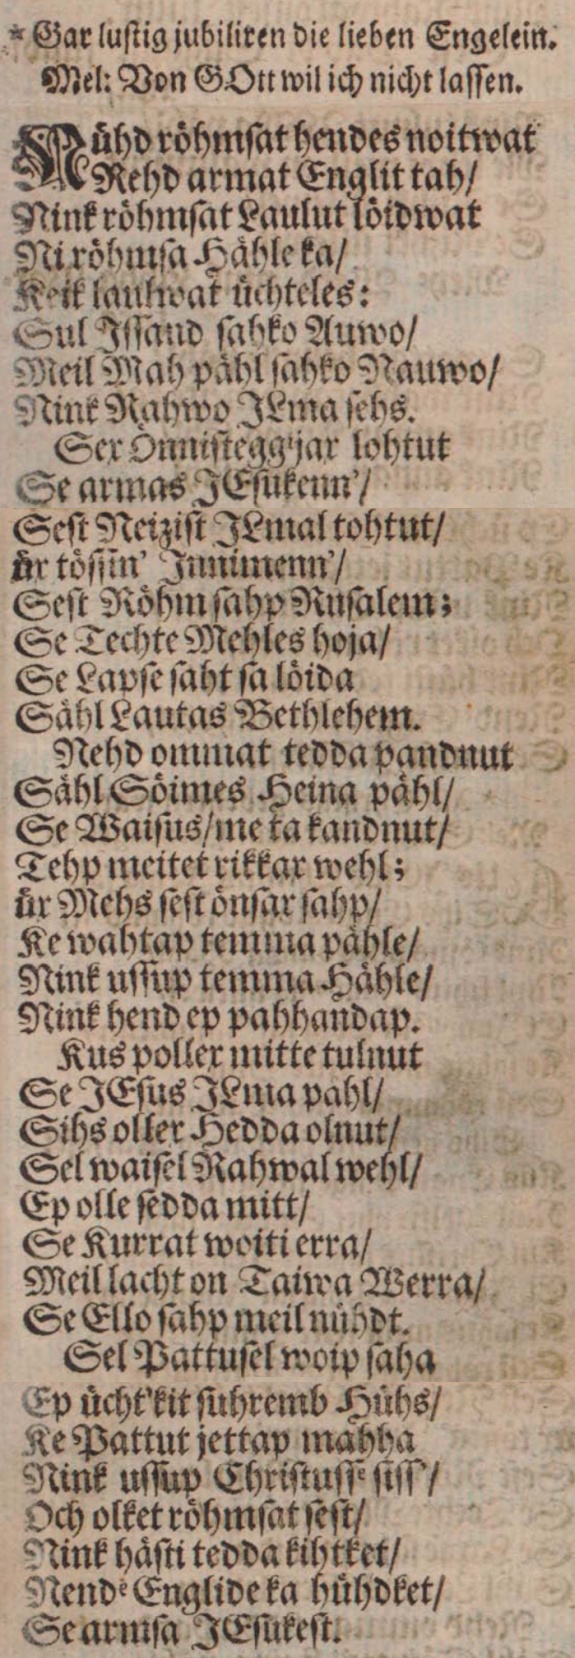 * Gar lustig jubiliren die lieben Engelein.
Mel: Von GOtt wil ich nicht lassen.
Nühd röhmsat hendes noitwat
Nehd armat Englit tah/
Nink röhmsat Laulut löidwat
Ni röhmsa Hähle ka/
Keik laulwat üchteles:
Sul Issand sahko Auwo/
Meil Mah pähl sahko Nauwo/
Nink Rahwo ILma sehs.
Sex Önnistegg'jax lohtut
Se armas JEsukenn'/
Sest Neizist ILmal tohtut/
üx tössin' Innimenn'/
Sest Röhm sahp Rusalem;
Se Techte Mehles hoja/
Se Lapse saht sa löida
Sähl Lautas Bethlehem.
Nehd ommat tedda pandnut
Sähl Söimes Heina pähl/
Se Waisus/me ta kandnut/
Tehp meitet rikkax wehl;
üx Mehs sest önsax sahp/
Ke wahtap temma pähle/
Nink ussup temma Hähle/
Nink hend ep pahhandap.
Kus pollex mitte tulnut
Se JEsus ILma pähl/
Sihs ollex Hedda olnut/
Sel waisel Rahwal wehl/
Ep olle sedda mitt/
Se Kurrat woiti erra/
Meil lacht on Taiwa Werra/
Se Ello sahp meil nühdt.
Sel Pattusel woip saha
Ep ücht'kit suhremb Hühs/
Ke Pattut jettap mahha
Nink ussup Christusse siss'/
Och olket röhmsat sest/
Nink hästi tedda kihtket/
Nende Englide ka hühdket/
Se armsa JEsukest.